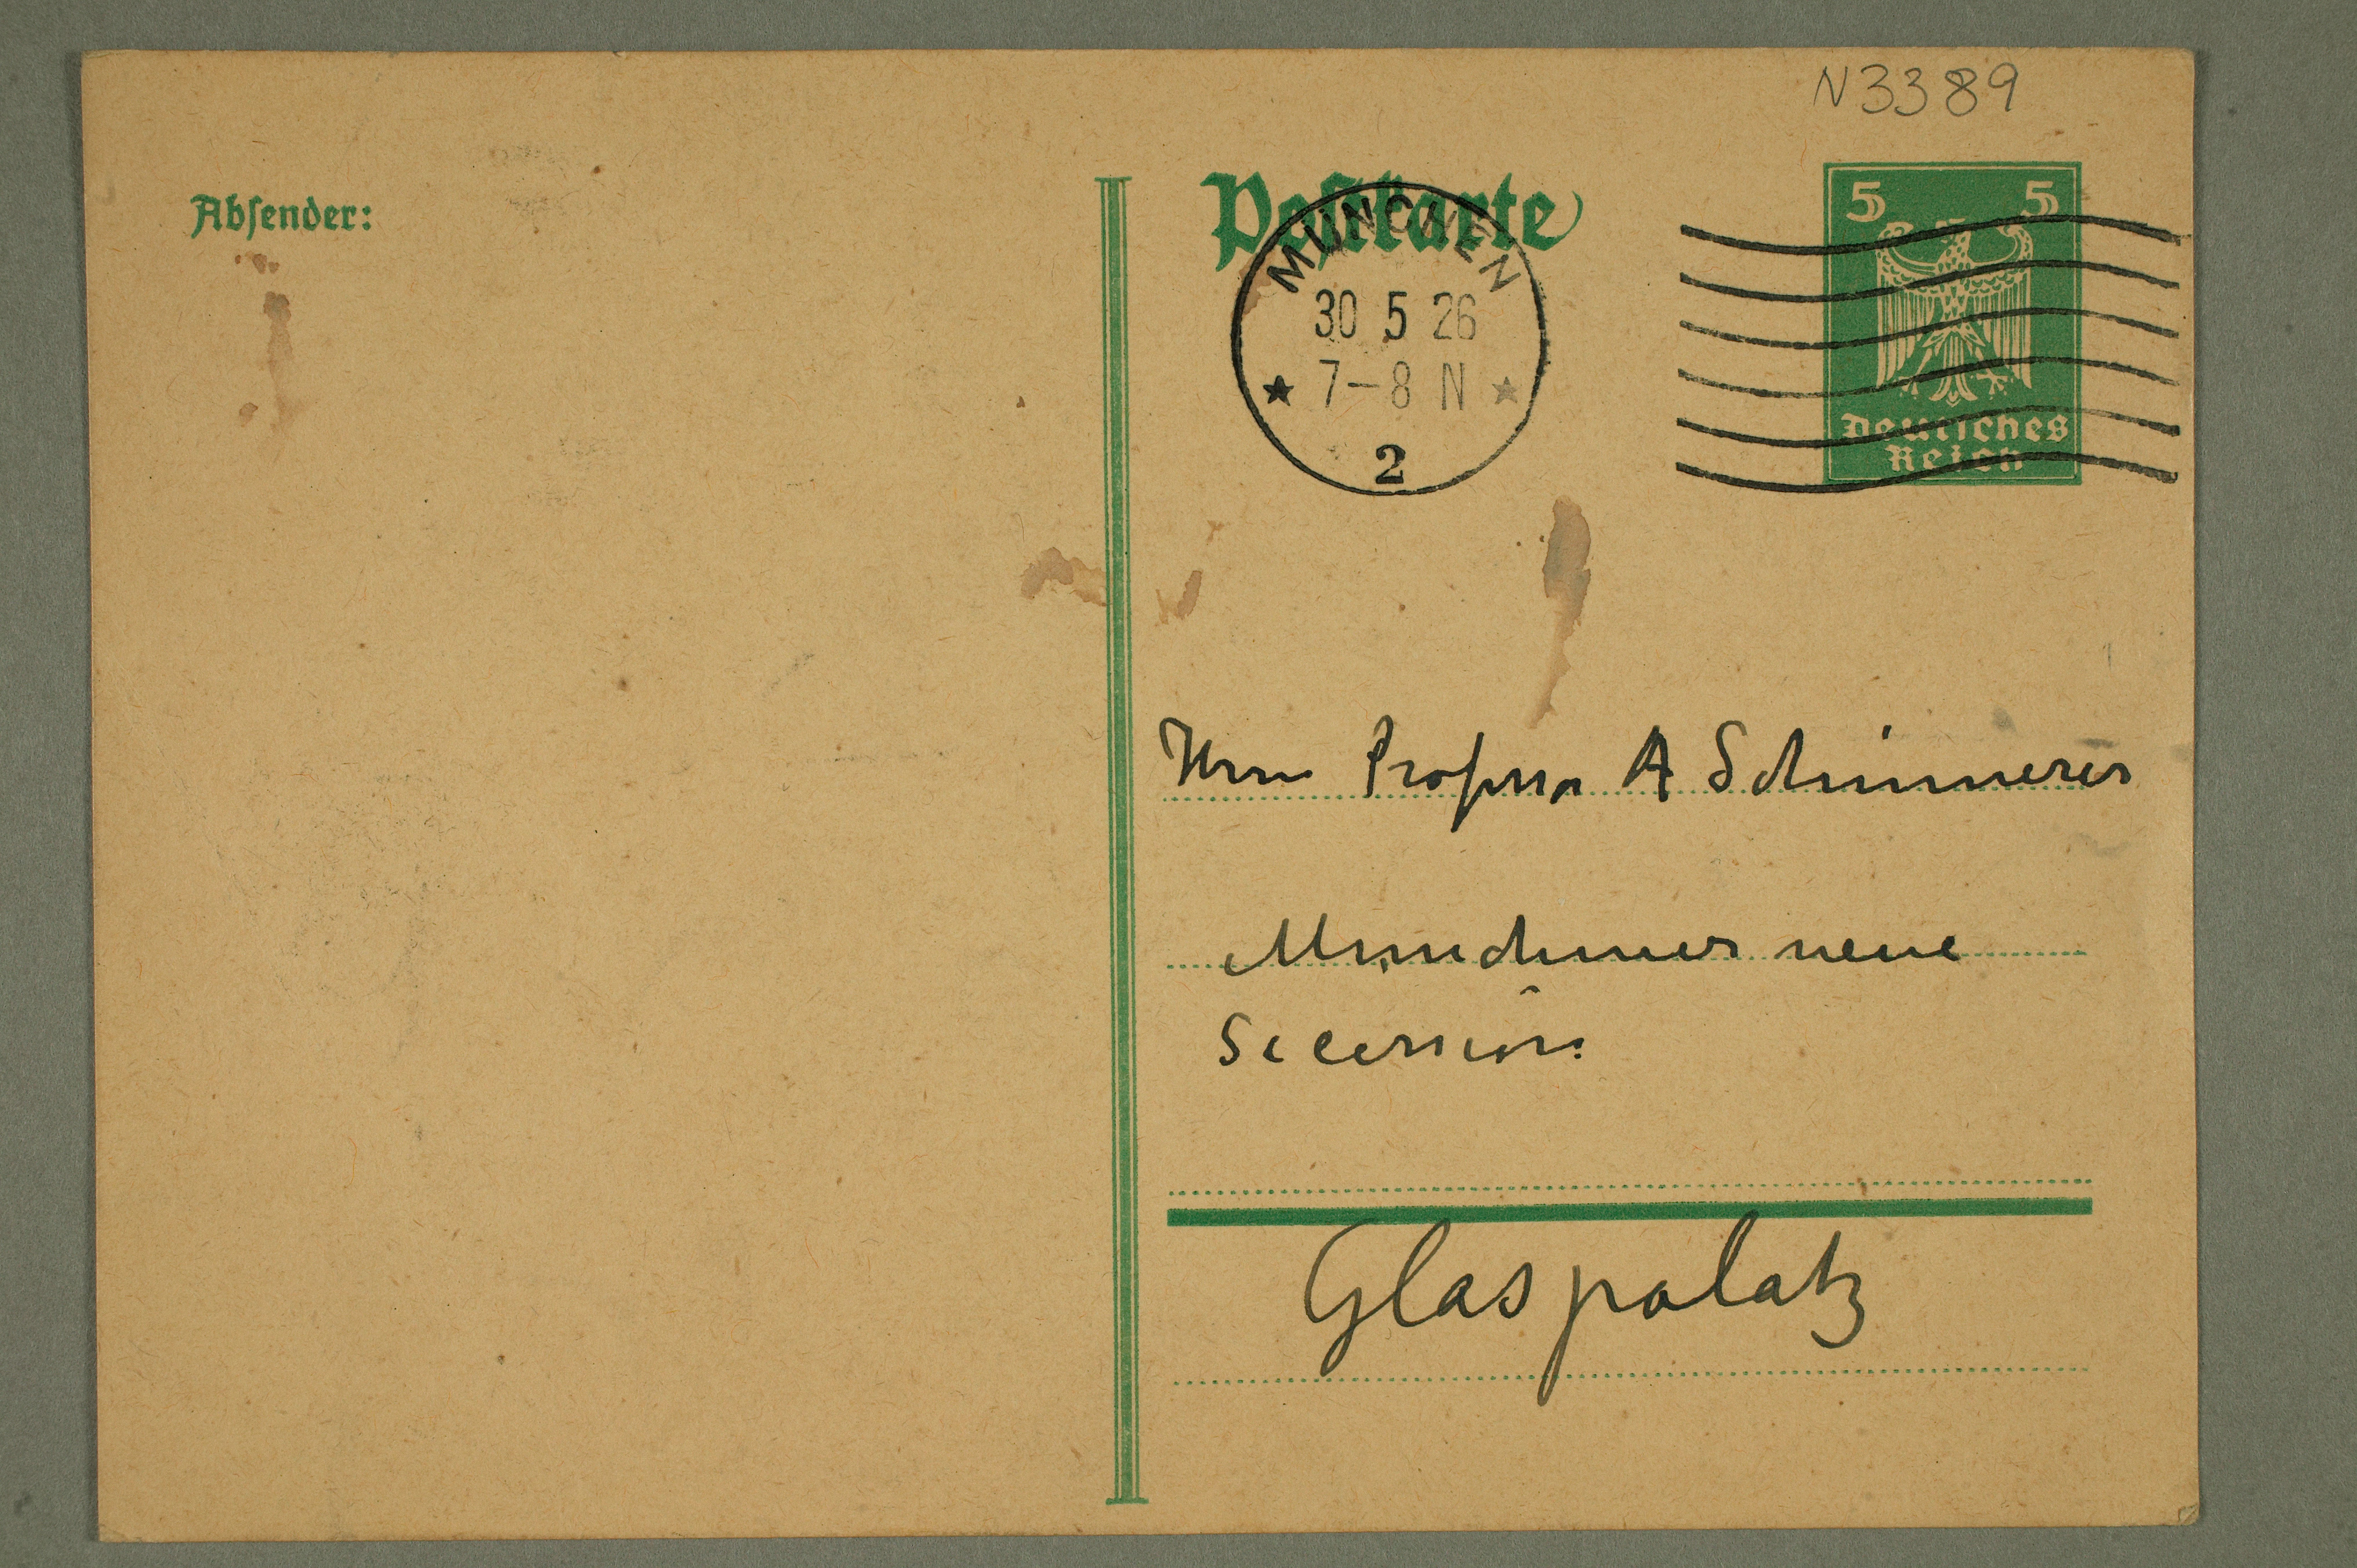 N3389
Absender:
Postkarte
5 5
Deutsches
Reich
MÜNCHEN
30 5 26
7–8 N
2
Herrn Professor A Schinnerer
Münchner neue
Secession
Glaspalatz